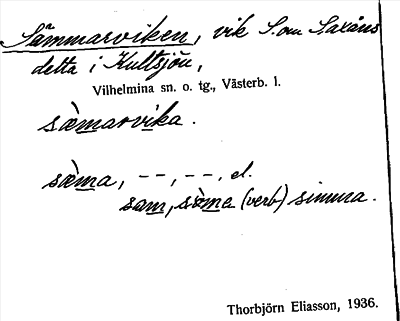 Sämmarviken, vik S. om Saxåns
detta i Kultsjön,
Vilhelmina sn. o. tg., Västerb. l.
sæ̀marvika.
sæ̀ma, --, --, el.
sam, sæ̀ma (verb) simma.
Thorbjörn Eliasson, 1936.